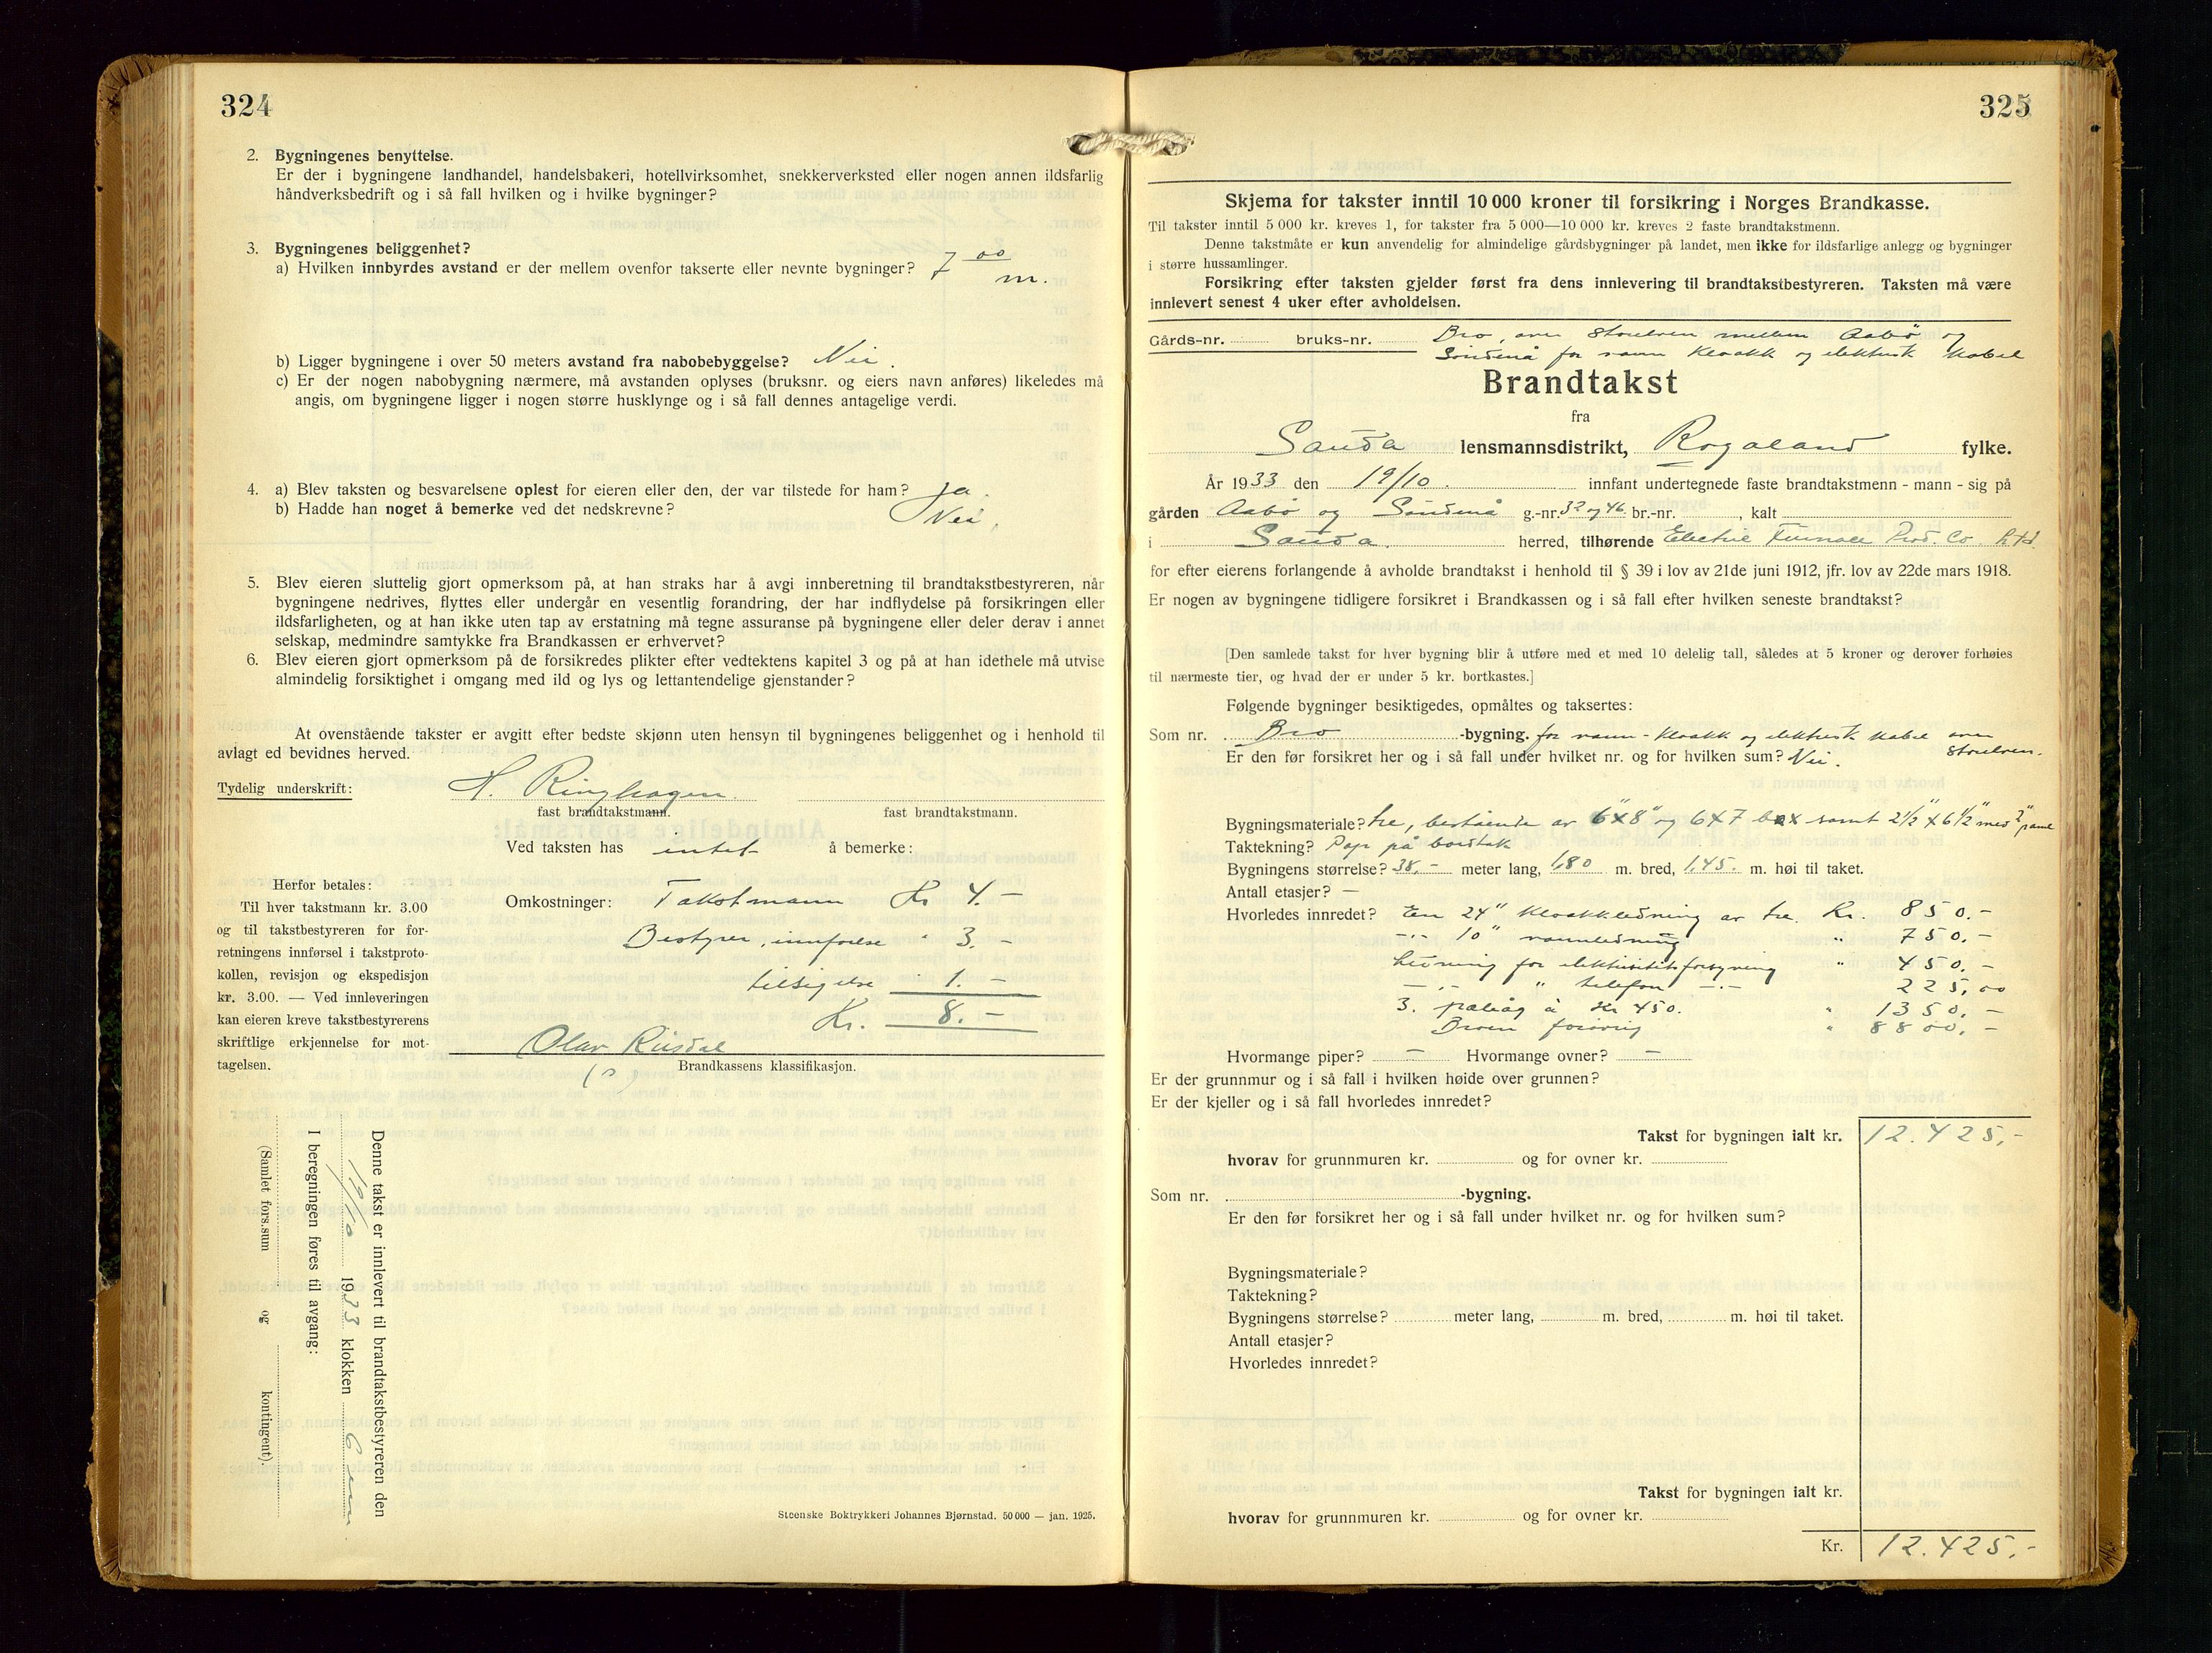 324
2. Bygningenes benyttelse.
Er der i bygningene landhandel, handelsbakeri, hotellvirksomhet, snekkerverksted eller nogen annen ildsfarlig
håndverksbedrift og i så fall hvilken og i hvilke bygninger?
3. Bygningenes beliggenhet?
a) Hvilken innbyrdes avstand er der mellem ovenfor takserte eller nevnte bygninger? 7 00 m.
b) Ligger bygningene i over 50 meters avstand fra nabobebyggelse? Nei.
c) Er der nogen nabobygning nærmere, må avstanden oplyses (bruksnr. og eiers navn anføres) likeledes må
angis, om bygningene ligger i nogen større husklynge og i så fall dennes antagelige verdi.
4. a) Blev taksten og besvarelsene oplest for eieren eller den, der var tilstede for ham? Ja.
b) Hadde han noget å bemerke ved det nedskrevne? Nei.
5. Blev eieren sluttelig gjort opmerksom på, at han straks har å avgi innberetning til brandtakstbestyreren, når
bygningene nedrives, flyttes eller undergår en vesentlig forandring, der har indflydelse på forsikringen eller
ildsfarligheten, og at han ikke uten tap av erstatning må tegne assuranse på bygningene eller deler derav i annet
selskap, medmindre samtykke fra Brandkassen er erhvervet?
6. Blev eieren gjort opmerksom på de forsikredes plikter efter vedtektens kapitel 3 og på at han idethele må utvise
almindelig forsiktighet i omgang med ild og lys og lettantendelige gjenstander?
At ovenstående takster er avgitt efter bedste skjønn uten hensyn til bygningenes beliggenhet og i henhold til
avlagt ed bevidnes herved.
Tydelig underskrift: H. Ringhagen.
fast brandtakstmann. fast brandtakstmann.
Ved taksten has intet å bemerke:
Herfor betales:
Til hver takstmann kr. 3.00
og til takstbestyreren for for-
retningens innførsel i takstproto-
kollen, revisjon og ekspedisjon
kr. 3.00. — Ved innleveringen
kan eieren kreve takstbestyrerens
skriftlige erkjennelse for mot-
tagelsen.
Omkostninger: Takstmann Kr 4.-
Bestyrer, innførelse " 3.-
tilsigelse 1.-
Kr. 8.-
Olav Risdal
Brandkassens klassifikasjon.
Denne takst er innlevert til brandtakstbestyreren den
19/10 1933 klokken 6 em
I beregningen føres til avgang:
(Samlet fors.sum og kontingent).
Steenske Boktrykkeri Johannes Bjørnstad. 50 000 — jan. 1925.
325
Skjema for takster inntil 10 000 kroner til forsikring i Norges Brandkasse.
Til takster inntil 5 000 kr. kreves 1, for takster fra 5 000—10 000 kr. kreves 2 faste brandtakstmenn.
Denne takstmåte er kun anvendelig for almindelige gårdsbygninger på landet, men ikke for ildsfarlige anlegg og bygninger
i større hussamlinger.
Forsikring efter taksten gjelder først fra dens innlevering til brandtakstbestyreren. Taksten må være
innlevert senest 4 uker efter avholdelsen.
Gårds-nr. bruks-nr. Bro, over Storelven mellem Aabø og
Søndenå for vann kloakk og elektrisk kabel
Brandtakst
fra
Sauda lensmannsdistrikt, Rogaland fylke.
År 1933 den 19/10. innfant undertegnede faste brandtakstmenn - mann - sig på
gården Aabø og Søndenå g.-nr. 32 og 46 br.-nr. , kalt
i Sauda. herred, tilhørende Electric Furnace Prod. Co. Ltd.
for efter eierens forlangende å avholde brandtakst i henhold til § 39 i lov av 21de juni 1912, jfr. lov av 22de mars 1918.
Er nogen av bygningene tidligere forsikret i Brandkassen og i så fall efter hvilken seneste brandtakst?
[Den samlede takst for hver bygning blir å utføre med et med 10 delelig tall, således at 5 kroner og derover forhøies
til nærmeste tier, og hvad der er under 5 kr. bortkastes.]
Følgende bygninger besiktigedes, opmåltes og taksertes:
Som nr. Bro -bygning. for vann- kloakk og elektrisk kabel over
Storelven.
Er den før forsikret her og i så fall under hvilket nr. og for hvilken sum? Nei.
Bygningsmateriale? tre, bestående av 6"x8" og 6x7 samt 2½"x6½" med 2"
Taktekning? Pap på bordtak
Bygningens størrelse? 38,- meter lang, 1,80 m. bred, 1,45. m. høi til taket.
Antall etasjer? —
Hvorledes innredet? En 24" kloakkledning av tre. Kr. 850.-
-"- 10" vannledning " 750.-
Ledning for elektrisitetsforsyning " 450.-
-"- " telefon -"- 225,00
3. pæleåg à Kr 450. " 1350.-
Broen forøvrig " 8800.-
Hvormange piper? — Hvormange ovner? —
Er der grunnmur og i så fall i hvilken høide over grunnen?
Er der kjeller og i så fall hvorledes innredet?
Takst for bygningen ialt kr. 12.425,-
hvorav for grunnmuren kr. og for ovner kr.
Som nr. -bygning.
Er den før forsikret her og i så fall under hvilket nr. og for hvilken sum?
Bygningsmateriale?
Taktekning?
Bygningens størrelse? meter lang, m. bred, m. høi til taket.
Antall etasjer?
Hvorledes innredet?
Takst for bygningen ialt kr.
hvorav for grunnmuren kr. og for ovner kr.
Kr. 12.425.-